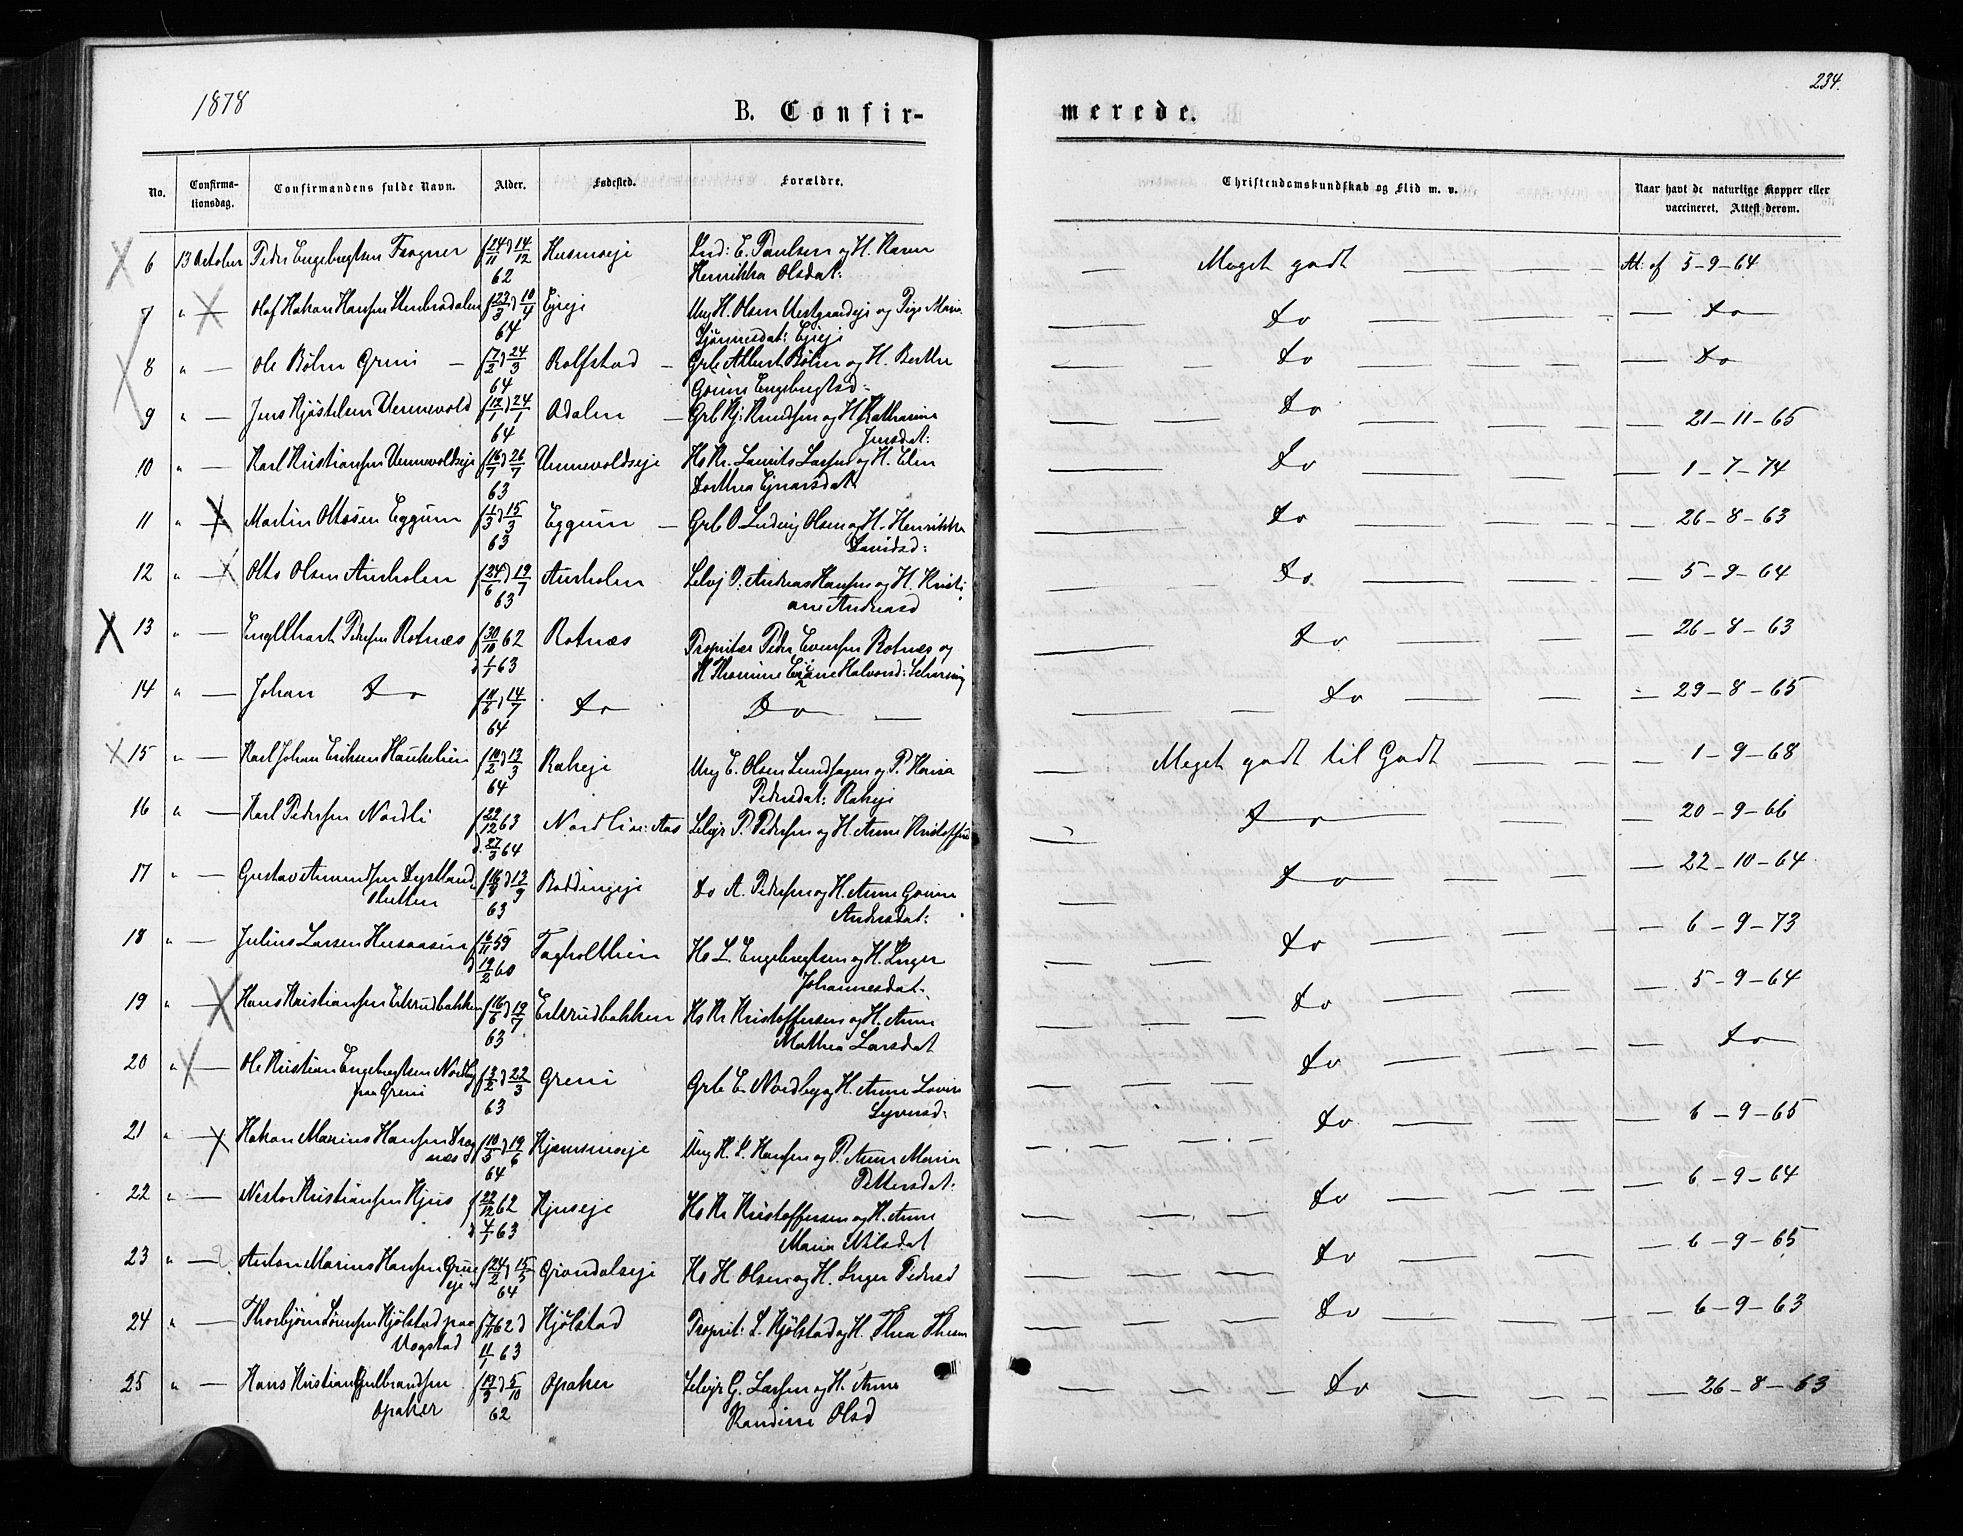 1878
B. Confir-
merede.
234.
No.
Confirma-
tionsdag.
Confirmandens fulde Navn.
Alder.
Fødested.
Forældre.
Christendomskundskab og Flid m. v.
Naar havt de naturlige Kopper eller
vaccineret. Attest derom.
6 13 October Peder Engebregtsen Fragner f 24/11 d 14/12 62 Husmseje E. Paulsen og H. Karen
Henrikka Olsdat: — Meget godt — At. af 5-9-64
7 " — Olof Hakon Hansen f 22/3 d 10/4 64 Ejeje Ung H. Olsen og Pige Maria
Ejeje — Do — Do
8 " — Ole Bølen Greni — f 7/2 d 24/3 64 Rolfstad — Grbr Albert Bølen og H. Berthe
Engebregtsd: — Do — Do
9 " — Jens Kjøstelsen Vennevold f 12/1 d 24/1 64 Odalen — Grbr Kj: Knudsen og H. Katharina
Jensdat: — Do — 21-11-65
10 " — Karl Kristiansen Vennevoldseje f 16/7 d 26/7 63 Vennevoldseje Hs Kr. Laurits Larsen og H. Elen
Dorthea Ejnarsdat — Do — 1-7-74
11 " — Martin Ottosen Eggum f 1/3 d 15/3 63 Eggum — Grbr O. Ludvig Olsen og H. Henrikke
Davidsd: — Do — 26-8-63
12 " — Otto Olsen Aurholen f 24/6 d 19/7 63 Aurholen Selvej O. Andreas Hansen og H. Kristi
ane Andreasd — Do — 5-9-64
13 " — Englehart Pedersen Rotnæs f 30/10 62 d 1/1 63 Rotnæs Propritær Peder Evensen Rotnæs og
H Thomine Halvorsd: — Do — 26-8-63
14 " — Johan Do f 10/6 d 14/7 64 Do Do — — Do — 29-8-65
15 " — Karl Johan Eriksen Haukelien f 10/2 d 13/3 64 Rakeje Ung E. Olsen og P.
Pedersdat: Rakeje — Meget godt til Godt — 1-9-68
16 " — Karl Pedersen Nordli f 22/12 63 d. 27/3 64 Nordlie: Aas Selvejr P. Pedersen og H. Anne
— Do — 20-9-66
17 " — Gustav Amundsen
Sletten f 16/8 d 13/9 63 Do A. Pedersen og H. Anne
Andersdat: — Do — 22-10-64
18 " — Julius Larsen f 16/11 59 d 19/2 60 Fagholtlien Hs L. Engebregtsen og H. Inger
Johannesdat. — Do — 6-9-73
19 " — Hans Kristiansen Ekkrudbakken f 16/6 d 12/7 63 Ekkrudbakken Hs Kr Kristoffersen og H. Anne
Mathea Larsdat — Do — 5-9-64
20 " — Ole Kristian Engebregtsen Nordby
paa Greni f 3/2 d 22/3 63 Greni Grbr E. Nordby og H. Anne Lovise
Syversd: — Do — Do
21 " — Hakon Marius Hansen
næs f 10/5 d 19/6 64 Ung H. L. Hansen og P. Anne Maria
Pettersdat: — Do — 6-9-65
22 " — Nestor Kristiansen Kjus f 22/12 62 d 4/1 63 Kjuseje Hs Kr Kristoffersen og H. Anne
Maria Nilsdat — Do — 6-9-64
23 " — Anton Marius Hansen
eje f 24/2 d 15/5 64 Grøndalseje Hs H. Olsen og H. Inger Pedersd — Do — 6-9-65
24 " — Thorbjørn Sørensen Kjølstad paa
Vogstad f 7/11 62 d 11/1 63 Kjølstad Proprit: S. Kjølstad og H. Thea — Do — 6-9-63
25 " — Hans Kristian Gulbrandsen
Opaker f 19/3 d 5/10 62 Opaker Selvejr G. Larsen og H. Anne
Randine Olsd — Do — 26-8-63